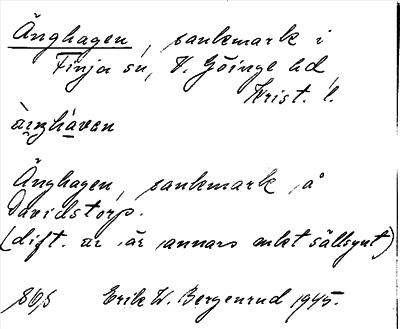 Änghagen, sankmark i
Finja sn, V. Göinge hd,
Krist. l.
ä̀rnghavan
Änghagen, sankmark på
Davidstorp.
(dift. är är annars enkel sällsynt)
Erik W. Bergenrud 1945.